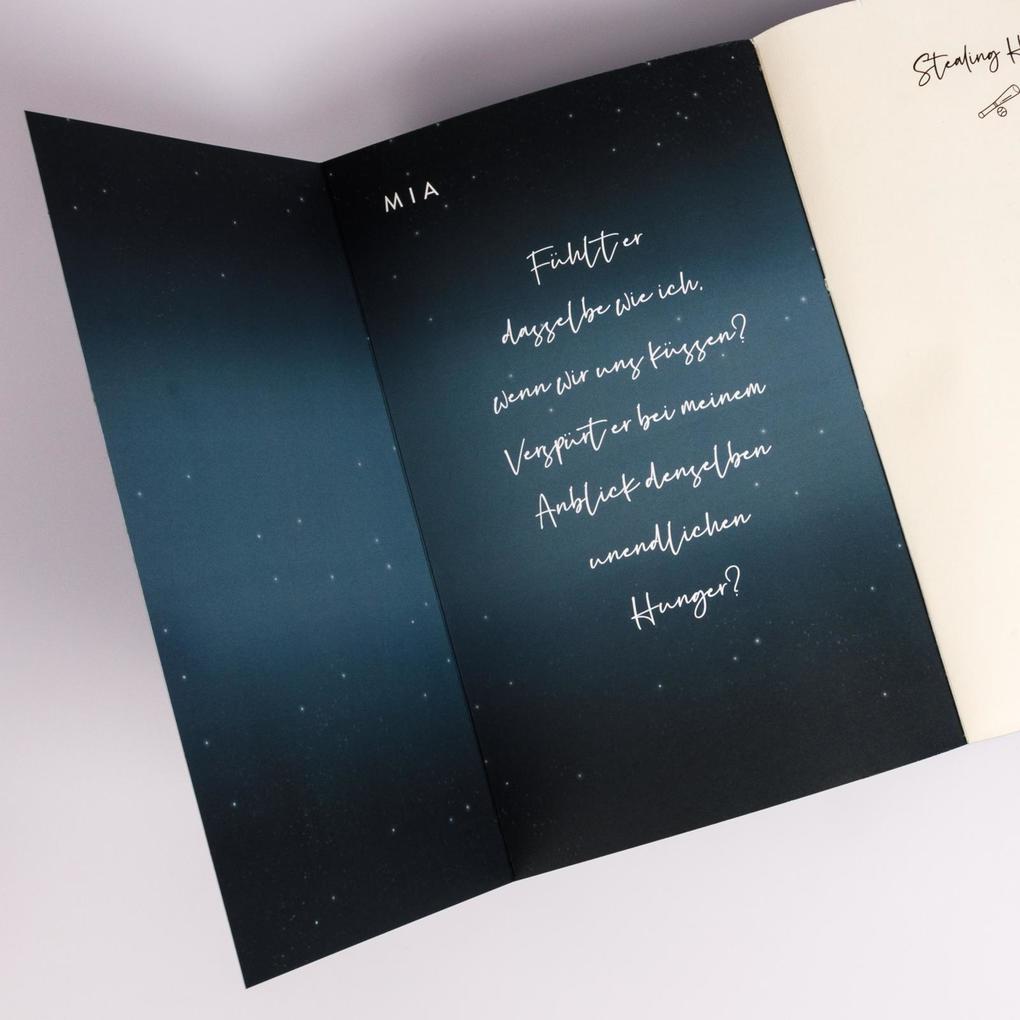 MIA
Fühlt er
dasselbe wie ich,
wenn wir uns küssen?
Verspürt er bei meinem
Anblick denselben
unendlichen
Hunger?
Stealing H